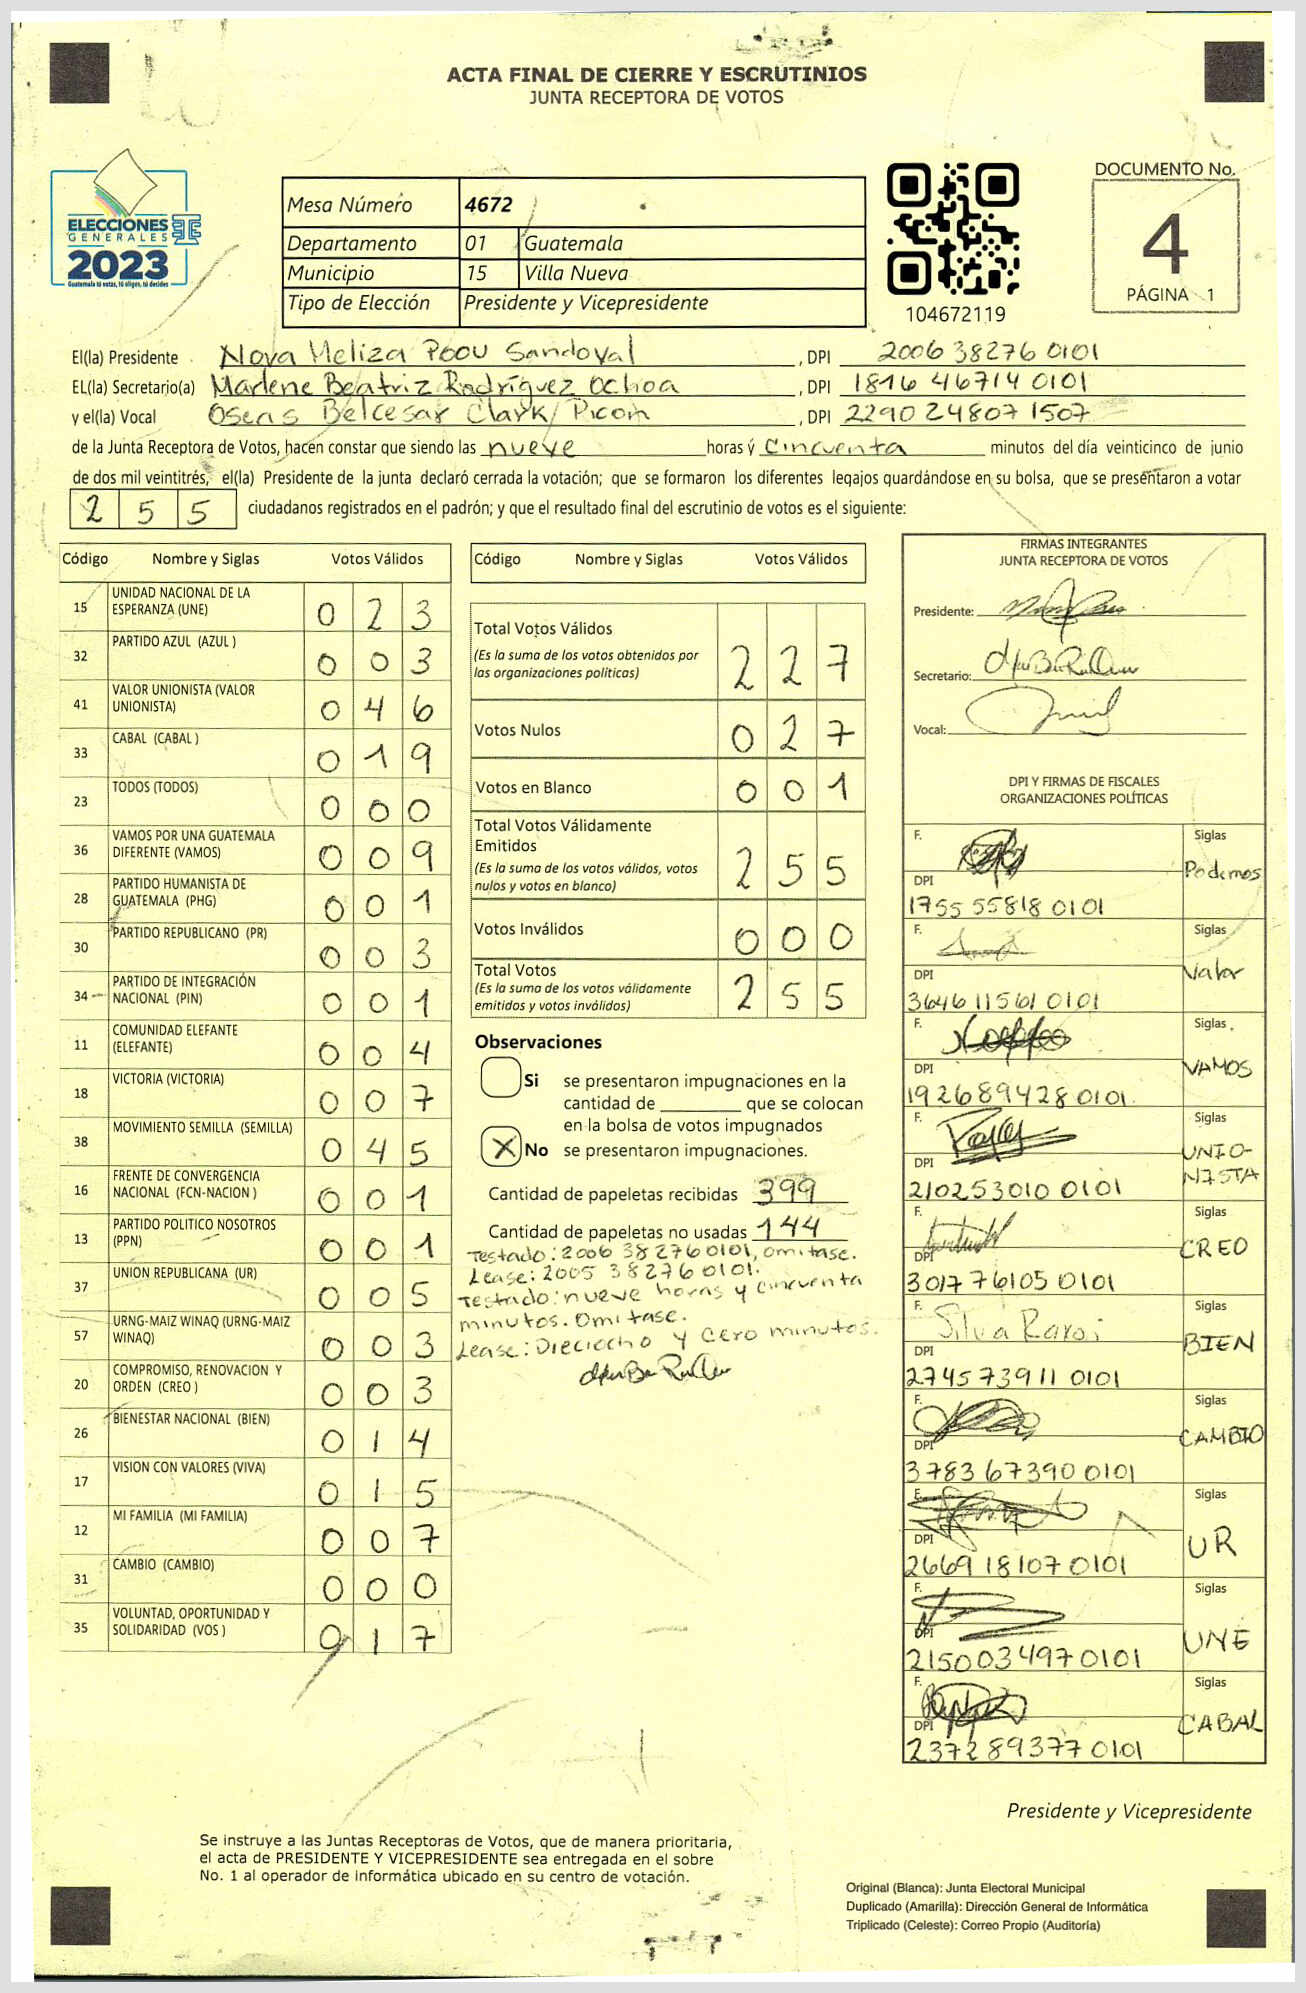 ACTA FINAL DE CIERRE Y ESCRUTINIOS
JUNTA RECEPTORA DE VOTOS
ELECCIONES
GENERALES
2023
Guatemala tú votas, tú eliges, tú decides
Mesa Número 4672
Departamento 01 Guatemala
Municipio 15 Villa Nueva
Tipo de Elección Presidente y Vicepresidente
104672119
DOCUMENTO No.
4
PÁGINA 1
El(la) Presidente Meliza Sandoval, DPI 2006 38276 0101
EL(la) Secretario(a) Marlene Beatriz Rodríguez Ochoa, DPI 1816 46714 0101
y el(la) Vocal Oseas Belcesar Clark Picon, DPI 2290 24807 1507
de la Junta Receptora de Votos, hacen constar que siendo las nueve horas y cincuenta minutos del día veinticinco de junio
de dos mil veintitrés, el(la) Presidente de la junta declaró cerrada la votación; que se formaron los diferentes legajos guardándose en su bolsa, que se presentaron a votar
255 ciudadanos registrados en el padrón; y que el resultado final del escrutinio de votos es el siguiente:
Código Nombre y Siglas Votos Válidos
15 UNIDAD NACIONAL DE LA ESPERANZA (UNE) 023
32 PARTIDO AZUL (AZUL ) 003
41 VALOR UNIONISTA (VALOR UNIONISTA) 046
33 CABAL (CABAL ) 019
23 TODOS (TODOS) 000
36 VAMOS POR UNA GUATEMALA DIFERENTE (VAMOS) 009
28 PARTIDO HUMANISTA DE GUATEMALA (PHG) 001
30 PARTIDO REPUBLICANO (PR) 003
34 PARTIDO DE INTEGRACIÓN NACIONAL (PIN) 001
11 COMUNIDAD ELEFANTE (ELEFANTE) 004
18 VICTORIA (VICTORIA) 007
38 MOVIMIENTO SEMILLA (SEMILLA) 045
16 FRENTE DE CONVERGENCIA NACIONAL (FCN-NACION ) 001
13 PARTIDO POLITICO NOSOTROS (PPN) 001
37 UNION REPUBLICANA (UR) 005
57 URNG-MAIZ WINAQ (URNG-MAIZ WINAQ) 003
20 COMPROMISO, RENOVACION Y ORDEN (CREO ) 003
26 BIENESTAR NACIONAL (BIEN) 014
17 VISION CON VALORES (VIVA) 015
12 MI FAMILIA (MI FAMILIA) 007
31 CAMBIO (CAMBIO) 000
35 VOLUNTAD, OPORTUNIDAD Y SOLIDARIDAD (VOS ) 017
Código Nombre y Siglas Votos Válidos
Total Votos Válidos 227
(Es la suma de los votos obtenidos por
las organizaciones políticas)
Votos Nulos 027
Votos en Blanco 001
Total Votos Válidamente
Emitidos 255
(Es la suma de los votos válidos, votos
nulos y votos en blanco)
Votos Inválidos 000
Total Votos 255
(Es la suma de los votos válidamente
emitidos y votos inválidos)
Observaciones
Si se presentaron impugnaciones en la
cantidad de ________ que se colocan
en la bolsa de votos impugnados
X No se presentaron impugnaciones.
Cantidad de papeletas recibidas 399
Cantidad de papeletas no usadas 144
Testado: 2006 38276 0101, omitase.
Lease: 2005 38276 0101.
Testado: nueve horas y cincuenta
minutos. Omitase.
Lease: Dieciocho y cero minutos.
FIRMAS INTEGRANTES
JUNTA RECEPTORA DE VOTOS
Presidente:
Secretario:
Vocal:
DPI Y FIRMAS DE FISCALES
ORGANIZACIONES POLÍTICAS
F. Siglas Podemos
DPI 1755 55818 0101
F. Siglas Valor
DPI 3646 11561 0101
F. Siglas VAMOS
DPI 1926 89428 0101
F. Siglas UNIO-
NISTA
DPI 2102 53010 0101
F. Siglas CREO
DPI 3017 76105 0101
F. Silva Siglas BIEN
DPI 2745 73911 0101
F. Siglas CAMBIO
DPI 3783 67390 0101
F. Siglas UR
DPI 2669 18107 0101
F. Siglas UNE
DPI 2150 03497 0101
F. Siglas CABAL
DPI 2372 89377 0101
Presidente y Vicepresidente
Se instruye a las Juntas Receptoras de Votos, que de manera prioritaria,
el acta de PRESIDENTE Y VICEPRESIDENTE sea entregada en el sobre
No. 1 al operador de informática ubicado en su centro de votación.
Original (Blanca): Junta Electoral Municipal
Duplicado (Amarilla): Dirección General de Informática
Triplicado (Celeste): Correo Propio (Auditoría)